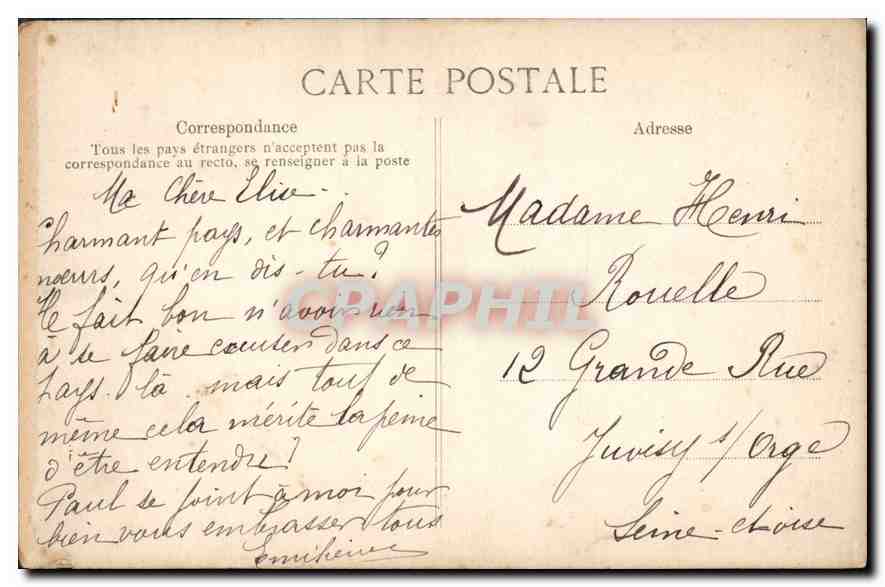 CARTE POSTALE
Correspondance
Tous les pays étrangers n'acceptent pas la
correspondance au recto, se renseigner à la poste
Ma Chère Elise
Charmant pays, et charmantes
mœurs, qu'en dis-tu?
Il fait bon n'avoir rien
à se faire causer dans ce
pays-là mais tout de
même cela mérite la peine
d'être entendu!
Paul se joint à moi pour
bien vous embrasser tous
Adresse
Madame Henri
Rouelle
12 Grande Rue
Juvisy s/Orge
Seine-et-oise
CPAPHIL